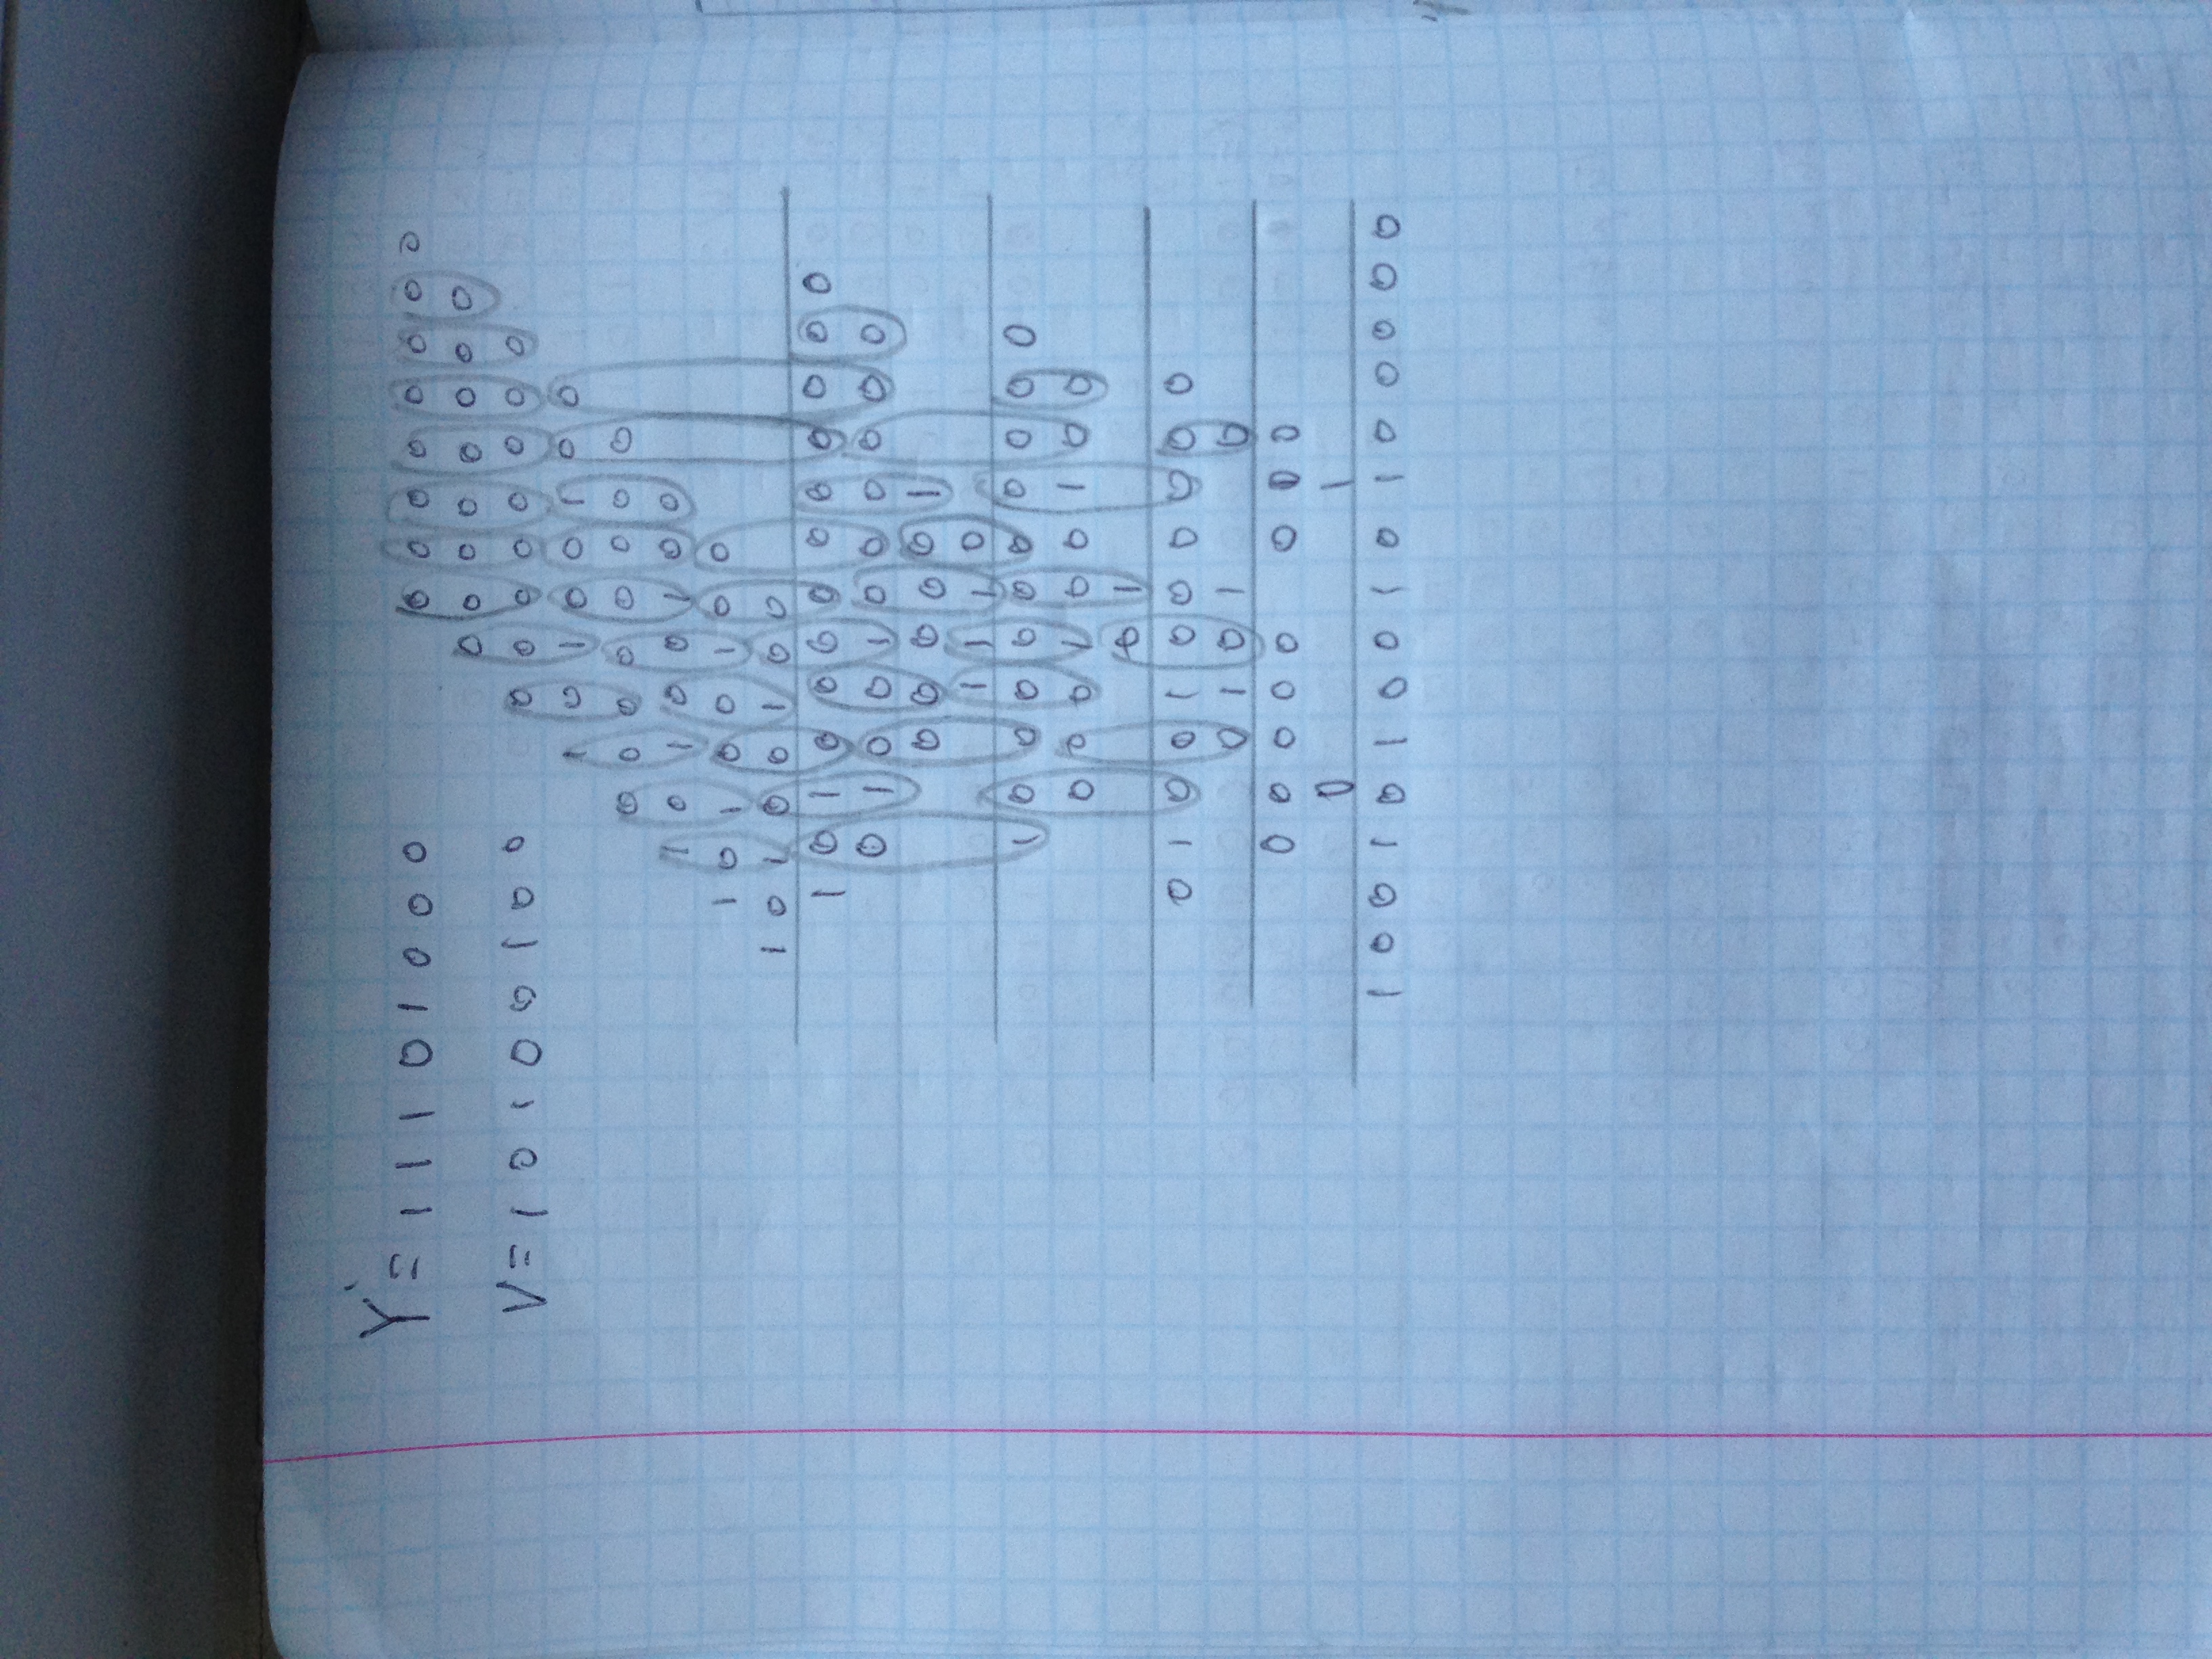 Y' = 1 1 1 0 1 0 0 0
V = 1 0 1 0 0 1 0 0
0 0 0 0 0 0 0 0
0 0 0 0 0 0 0 0
0 0 0 0 0 0 0 0
1 0 1 0 0 1 0 0
0 0 0 0 0 0 0 0
1 0 1 0 0 1 0 0
1 0 1 0 0 1 0 0
1 0 1 0 0 1 0 0
1 0 1 0 0 0 0 0 0 0 0 0 0
0 1 0 0 1 0 0 0 0 0 0
0 0 0 0 0 1
1 1 1 0
1 0 0 0 0 0 0 0 0 0 0
0 0 0 1 0 0 1 0 0
0 1
0 1 0 0 1 0 0 0 0 0 0
0 1 0 1 0
0 0 0 0 0 0 0 0
0 1
1 0 0 1 0 1 0 0 1 0 1 0 0 0 0 0